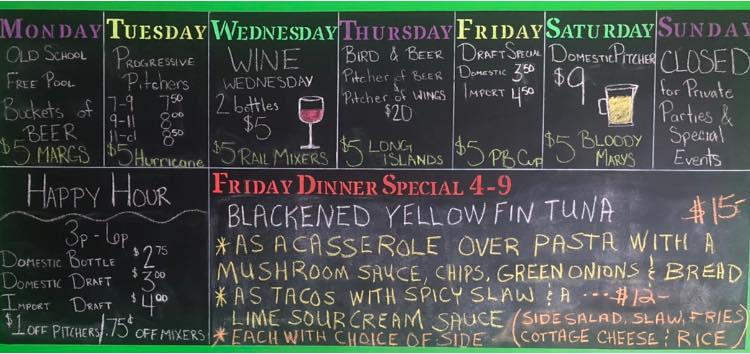 MONDAY
OLD SCHOOL
FREE POOL
BUCKETS of
BEER
$5 MARGS
TUESDAY
PROGRESSIVE
Pitchers
7-9 7.50
9-11 8.00
11-cl 8.50
$5 Hurricane
WEDNESDAY
WINE
WEDNESDAY
2 bottles
$5
$5 RAIL MIXERS
THURSDAY
BIRD & BEER
Pitcher of BEER
&
Pitcher of WINGS
$20
$5 LONG
ISLANDS
FRIDAY
DRAFT SPECIAL
DOMESTIC 3.50
IMPORT 4.50
$5 PB CUP
SATURDAY
DOMESTIC PITCHER
$9
$5 BLOODY
MARYS
SUNDAY
CLOSED
for Private
Parties &
Special
Events
HAPPY HOUR
3p-6p
DOMESTIC BOTTLE $2.75
DOMESTIC DRAFT $3.00
IMPORT DRAFT $4.00
$1 OFF PITCHERS/.75¢ OFF MIXERS
FRIDAY DINNER SPECIAL 4-9
BLACKENED YELLOW FIN TUNA $15-
* AS A CASSEROLE OVER PASTA WITH A
MUSHROOM SAUCE, CHIPS, GREEN ONIONS & BREAD
* AS TACOS WITH SPICY SLAW & A ---$12-
LIME SOUR CREAM SAUCE (SIDE SALAD, SLAW, FRIES,
* EACH WITH CHOICE OF SIDE COTTAGE CHEESE & RICE)